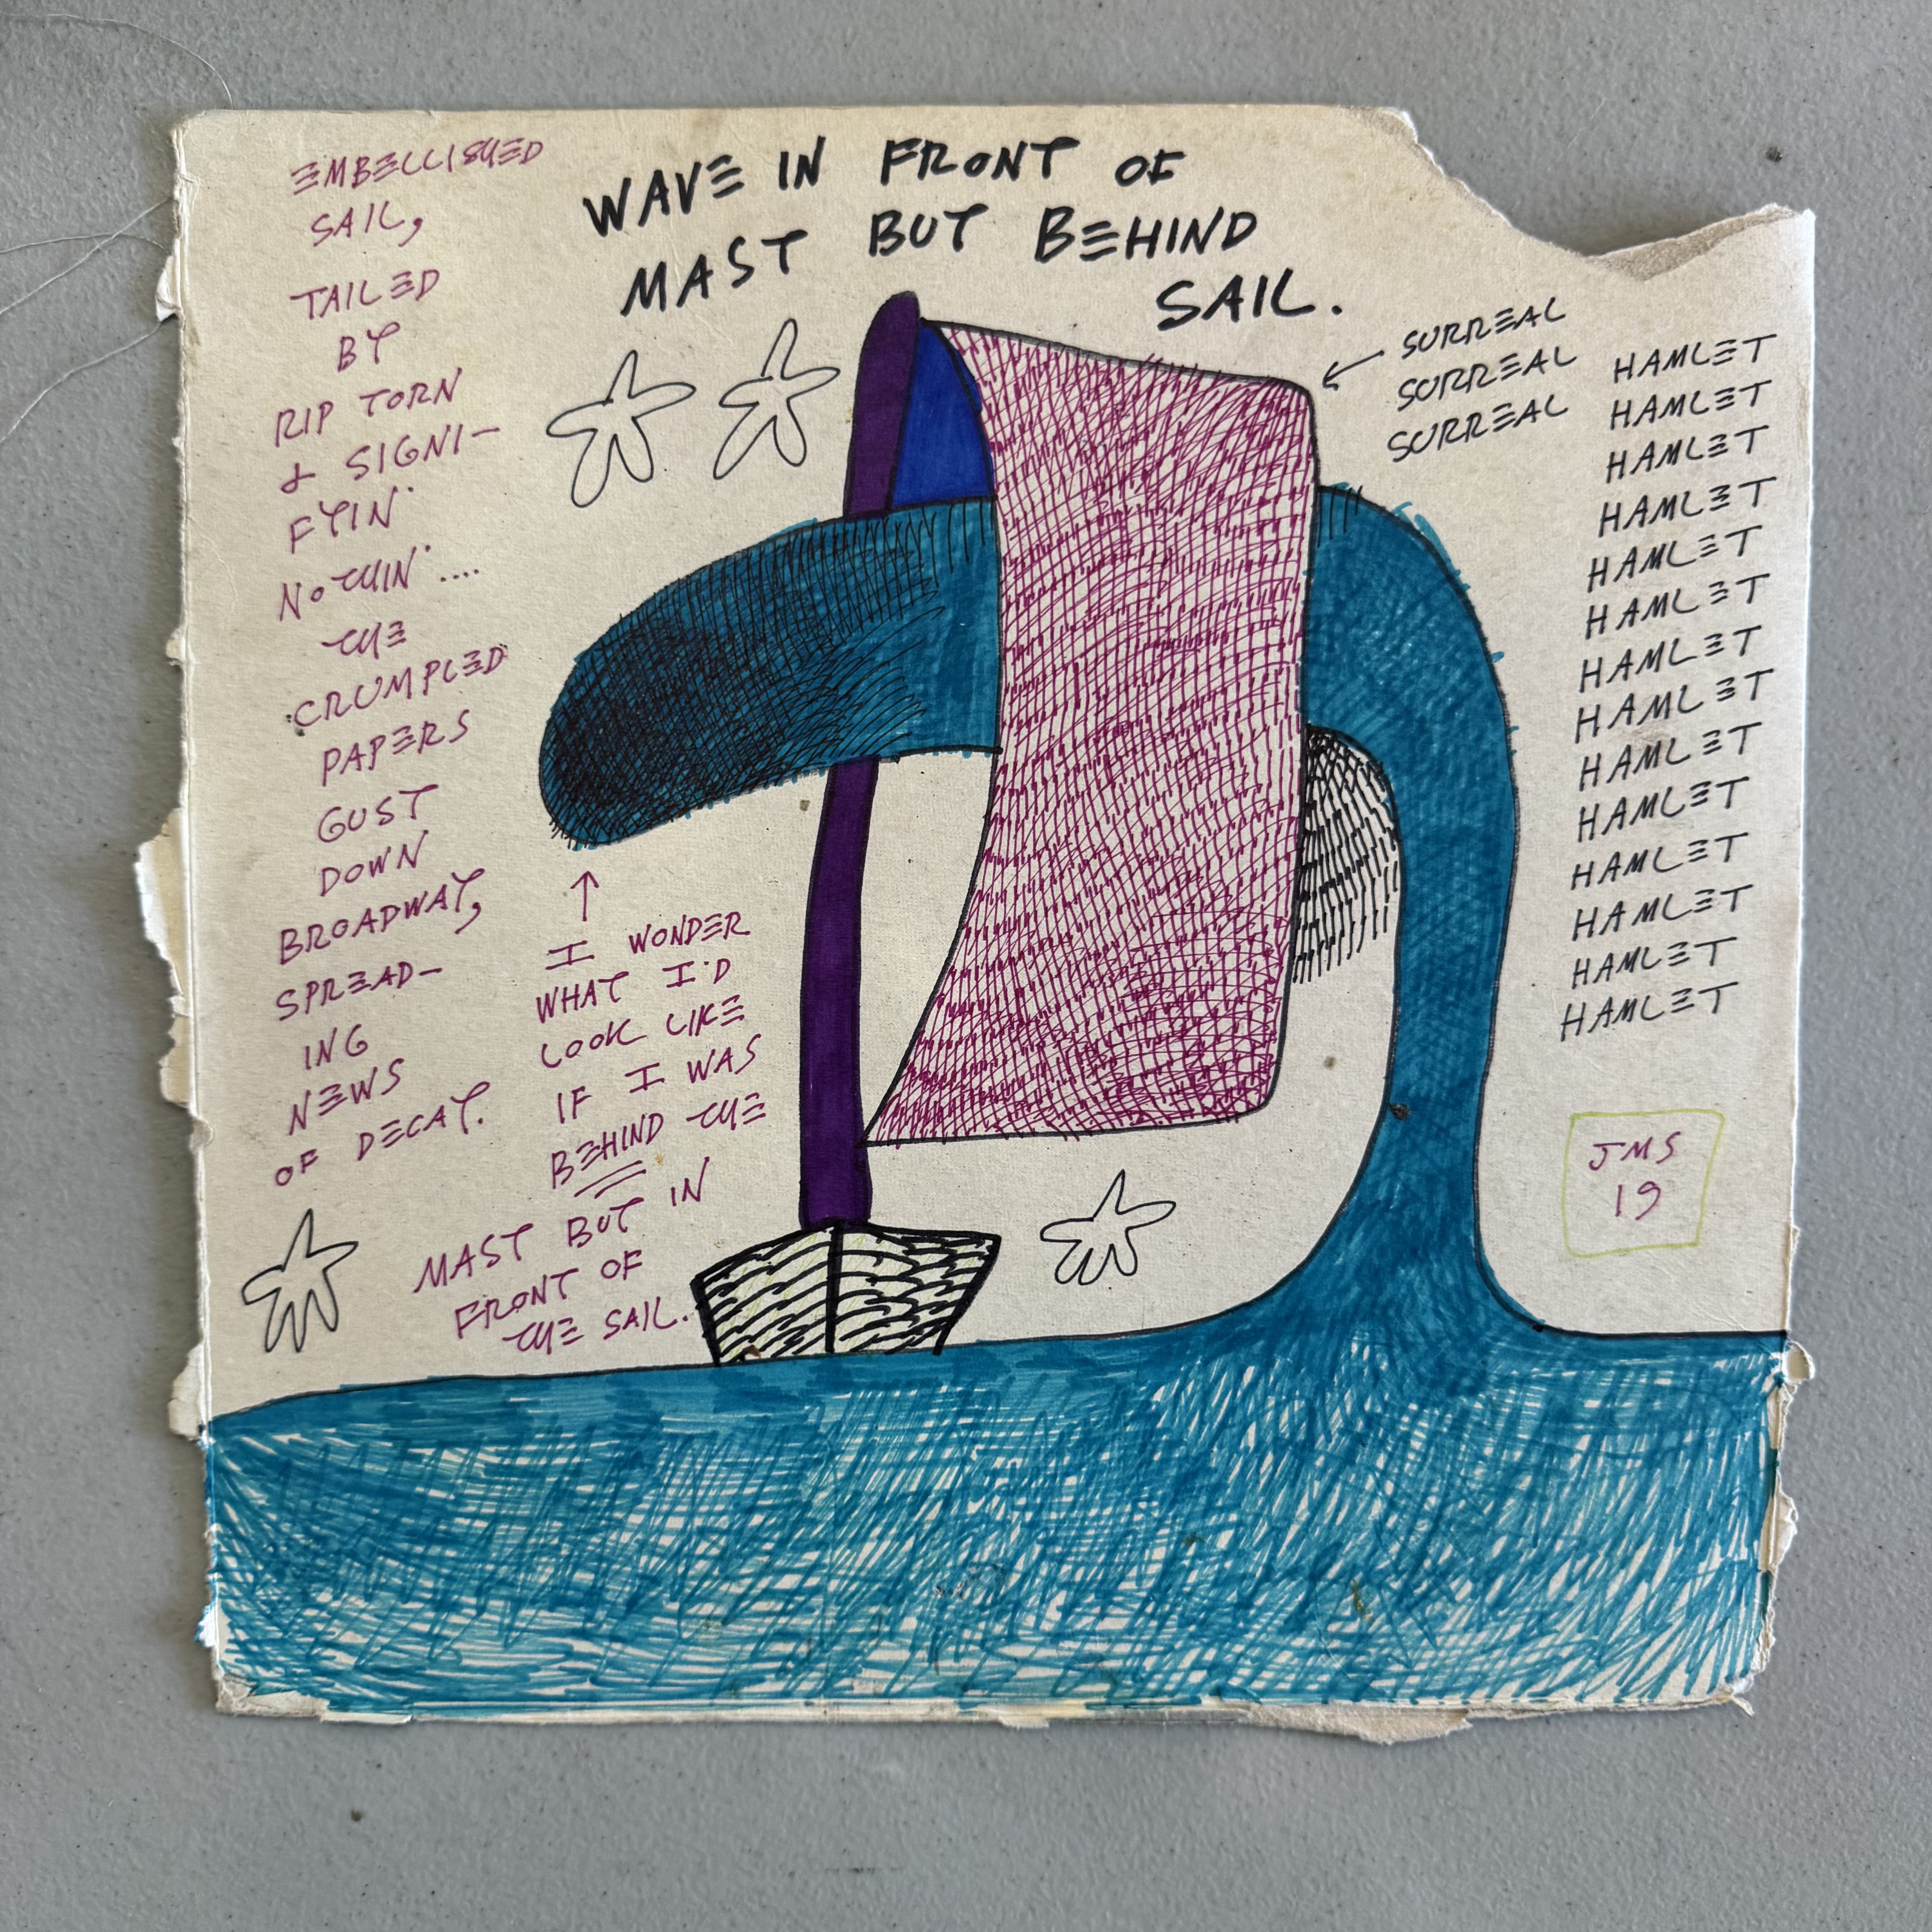 WAVE IN FRONT OF
MAST BUT BEHIND
SAIL.
EMBELLISHED
SAIL,
TAILED
BY
RIP TORN
& SIGNI-
FYIN'
NOTHIN'....
THE
CRUMPLED
PAPERS
GUST
DOWN
BROADWAY,
SPREAD-
ING
NEWS
OF DECAY.
↑
I WONDER
WHAT I'D
LOOK LIKE
IF I WAS
BEHIND THE
MAST BUT IN
FRONT OF
THE SAIL.
← SURREAL
SURREAL
SURREAL
HAMLET
HAMLET
HAMLET
HAMLET
HAMLET
HAMLET
HAMLET
HAMLET
HAMLET
HAMLET
HAMLET
HAMLET
HAMLET
HAMLET
JMS
19